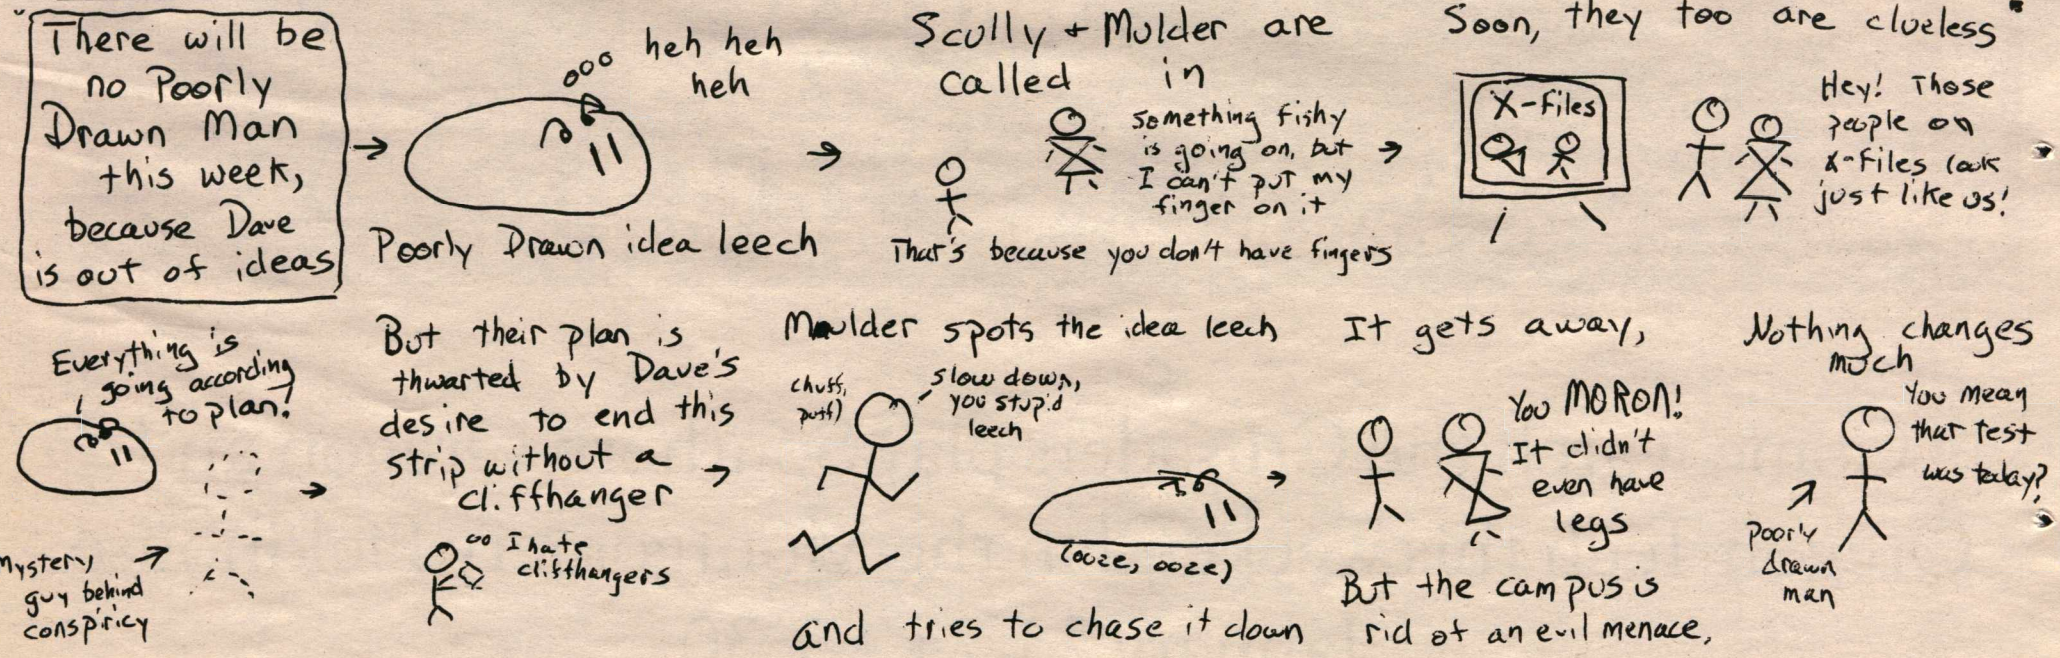 There will be
no Poorly
Drawn Man
this week,
because Dave
is out of ideas
heh heh
heh
Poorly Drawn idea leech
Scully + Mulder are
called in
Something fishy
is going on, but
I can't put my
finger on it
That's because you don't have fingers
Soon, they too are clueless
X-Files
Hey! Those
people on
X-Files look
just like us!
Everything is
going according
to plan!
Mystery
guy behind
conspiricy
But their plan is
thwarted by Dave's
desire to end this
strip without a
cliffhanger
I hate
cliffhangers
Mulder spots the idea leech
chuff,
puff)
slow down,
you stupid
leech
(ooze, ooze)
and tries to chase it down
It gets away,
You MORON!
It didn't
even have
legs
But the campus is
rid of an evil menace,
Nothing changes
much
You mean
that test
was today?
poorly
drawn
man